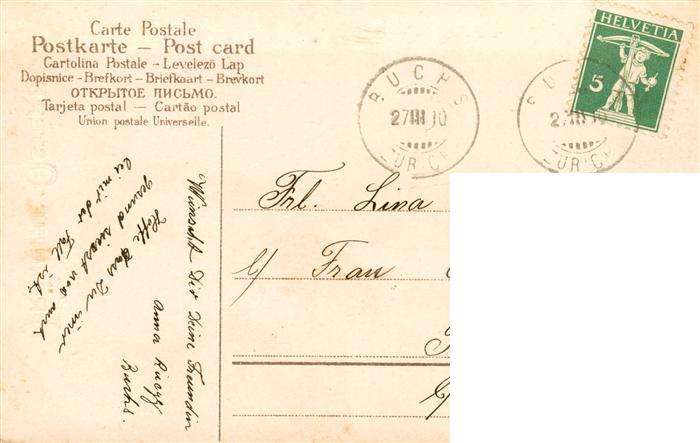 Carte Postale
Postkarte — Post card
Cartolina Postale - Levelező Lap
Dopisnice - Brefkort - Briefkaart - Brevkort
ОТКРЫТОЕ ПИСЬМО.
Tarjeta postal — Cartão postal
Union postale Universelle.
HELVETIA
5
BUCHS
27 III 10
ZÜRICH
BUCHS
27 III 10
ZÜRICH
Frl. Lina
c/ Frau
c/
Wünscht Dir Deine Freundin
Anna
Buchs.
Hoffe das Du
gesund
bei mir der Fall ist.